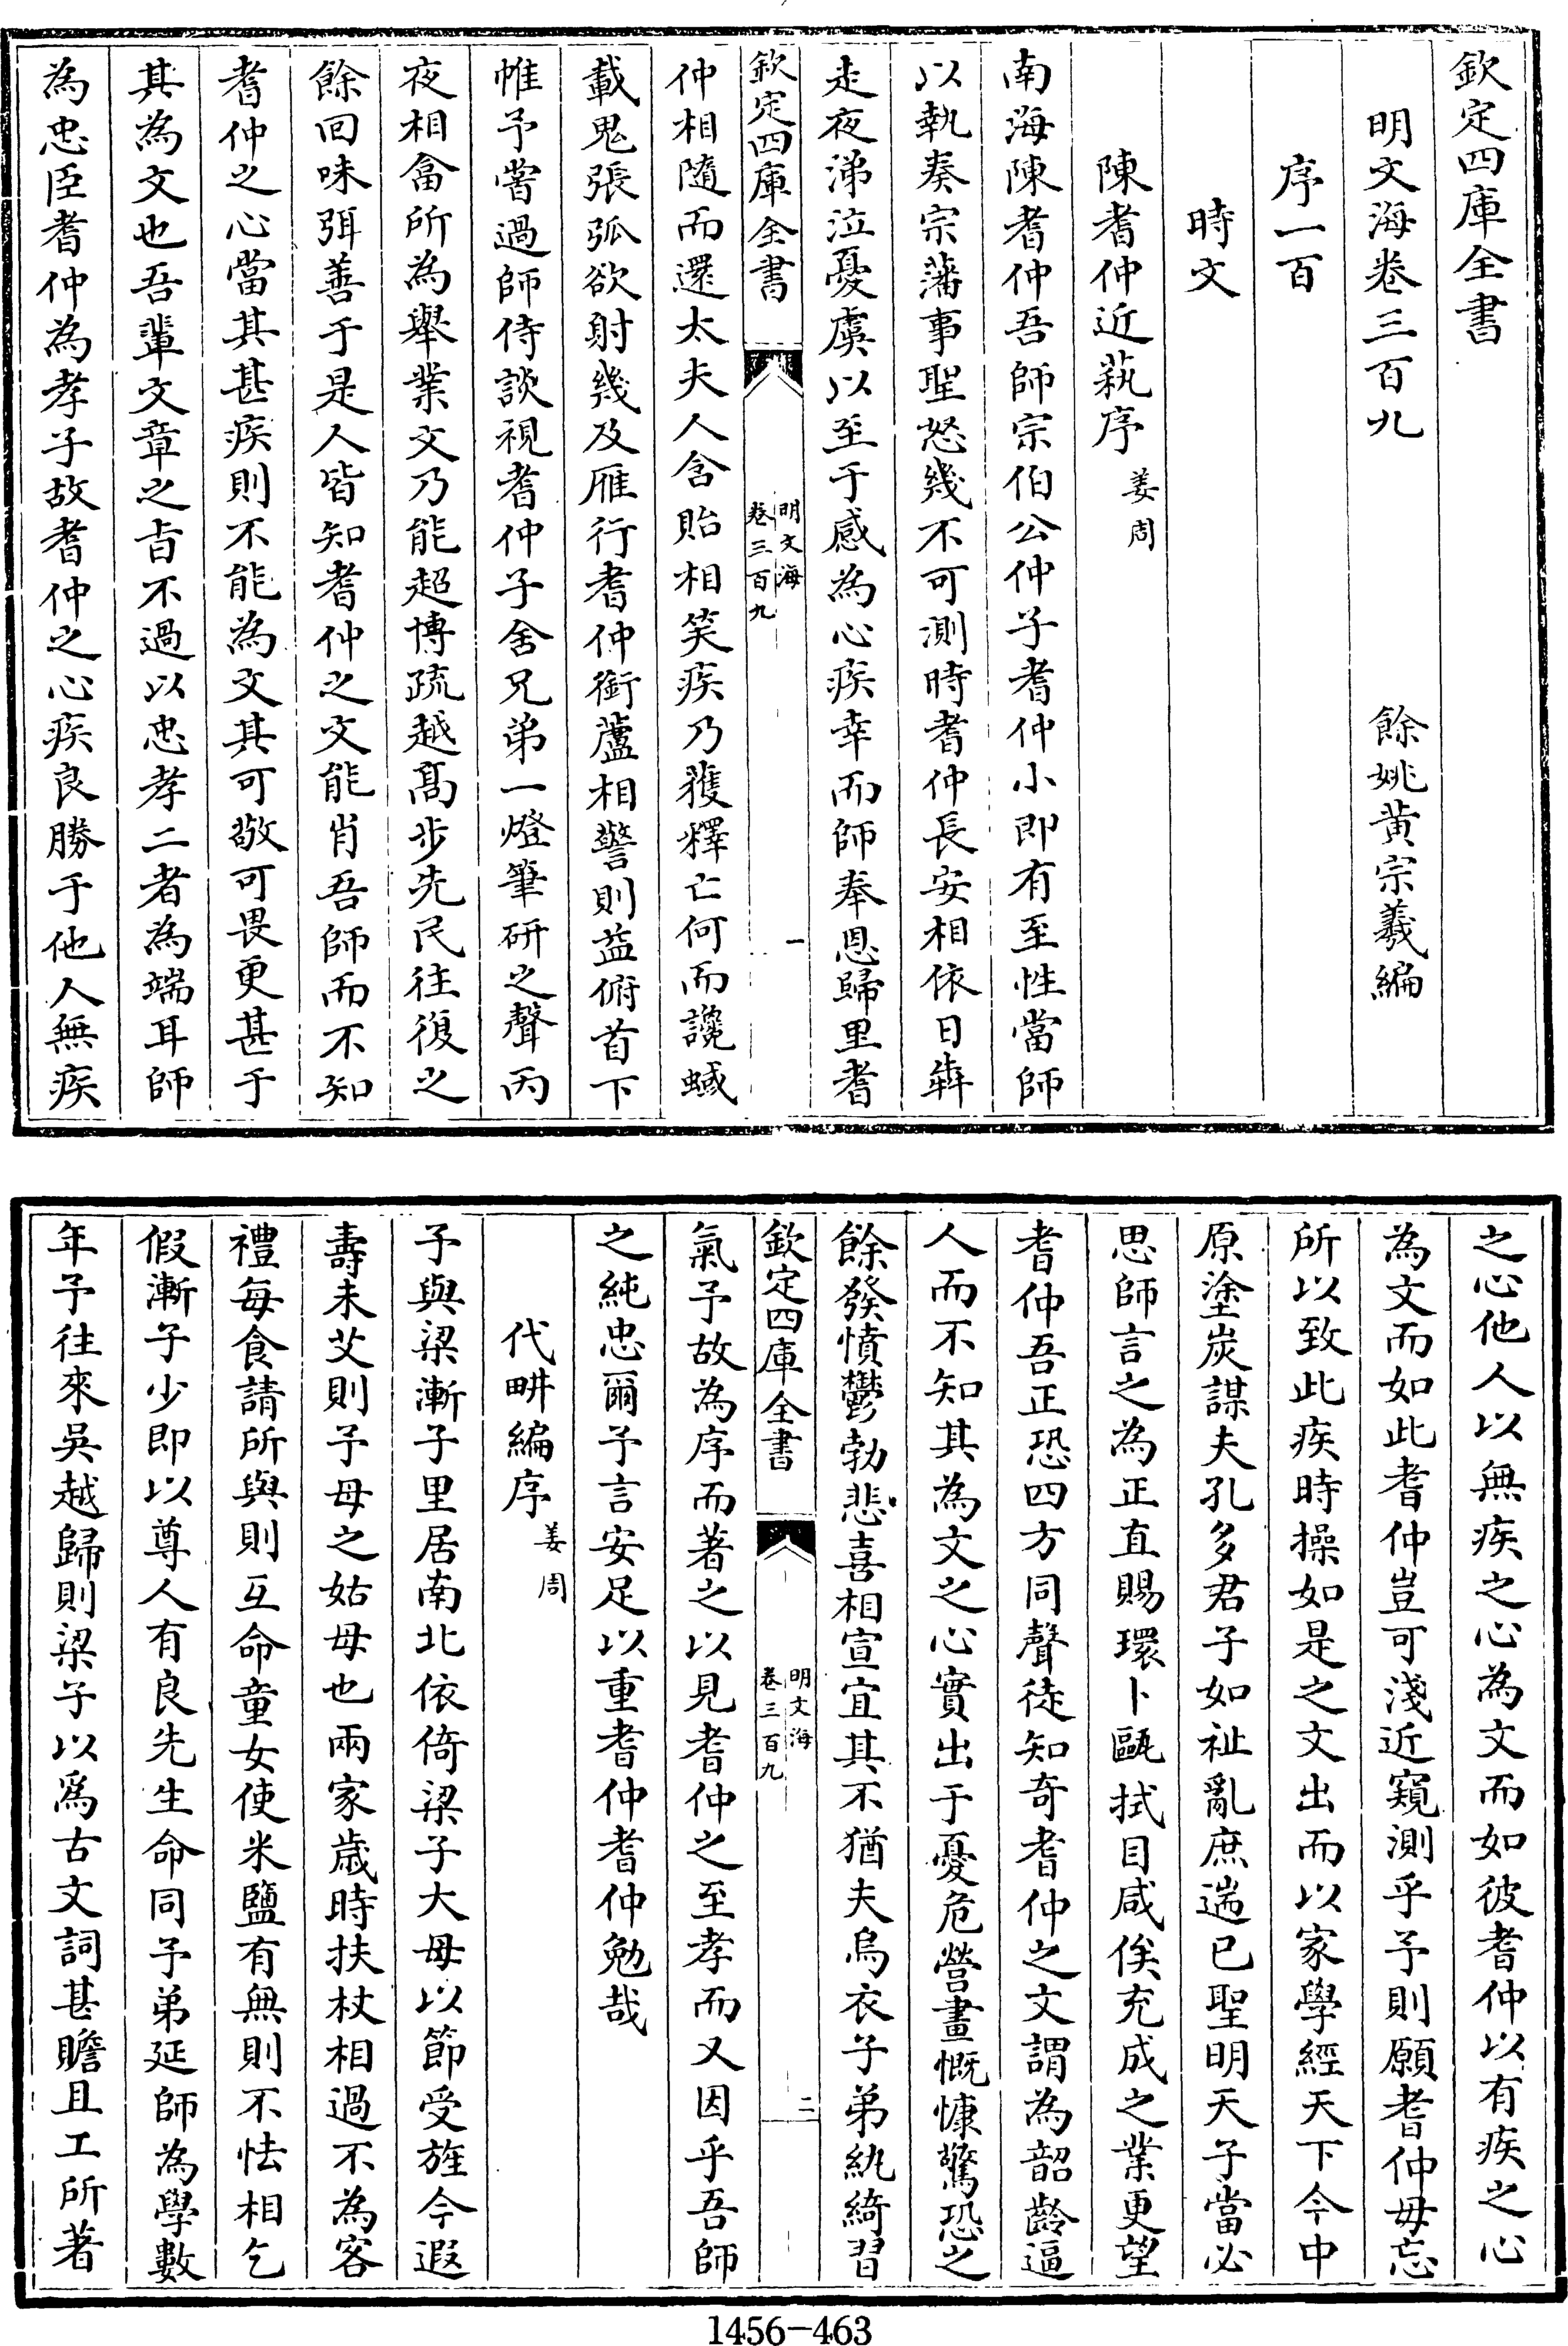 欽定四庫全書
明文海卷三百九
餘姚黄宗羲編
序一百
時文
陳耆仲近萟序
姜周
南海陳耆仲吾師宗伯公仲子耆仲小即有至性當師
以執奏宗藩事聖怒幾不可測時耆仲長安相依日犇
走夜涕泣憂虞以至于感為心疾幸而師奉恩歸里耆
欽定四庫全書
明文海
卷三百九
一
仲相隨而還太夫人含貽相笑疾乃獲釋亡何而讒蜮
載鬼張弧欲射幾及雁行耆仲銜蘆相警則益俯首下
帷予嘗過師侍談視耆仲子舍兄弟一燈筆研之聲丙
夜相畣所為舉業文乃能超博疏越髙步先民往復之
餘回味弭善于是人皆知耆仲之文能肖吾師而不知
耆仲之心當其甚疾則不能為文其可敬可畏更甚于
其為文也吾輩文章之㫖不過以忠孝二者為端耳師
為忠臣耆仲為孝子故耆仲之心疾良勝于他人無疾
之心他人以無疾之心為文而如彼耆仲以有疾之心
為文而如此耆仲豈可淺近窺測乎予則願耆仲毋忘
所以致此疾時操如是之文出而以家學經天下今中
原塗炭謀夫孔多君子如祉亂庶遄已聖明天子當必
思師言之為正直賜環卜甌拭目咸俟充成之業更望
耆仲吾正恐四方同聲徒知奇耆仲之文謂為韶齡逼
人而不知其為文之心實出于憂危營畫慨慷驚恐之
餘發憤鬱勃悲喜相宣宜其不猶夫烏衣子弟紈綺習
欽定四庫全書
明文海
卷三百九
二
氣予故為序而著之以見耆仲之至孝而又因乎吾師
之純忠爾予言安足以重耆仲耆仲勉哉
代畊編序
姜周
予與梁漸子里居南北依倚梁子大母以節受旌今遐
壽未艾則予母之姑母也兩家歲時扶杖相過不為客
禮每食請所與則互命童女使米鹽有無則不怯相乞
假漸子少即以尊人有良先生命同予弟延師為學數
年予往來吳越歸則梁子以爲古文詞甚贍且工所著
1456-463